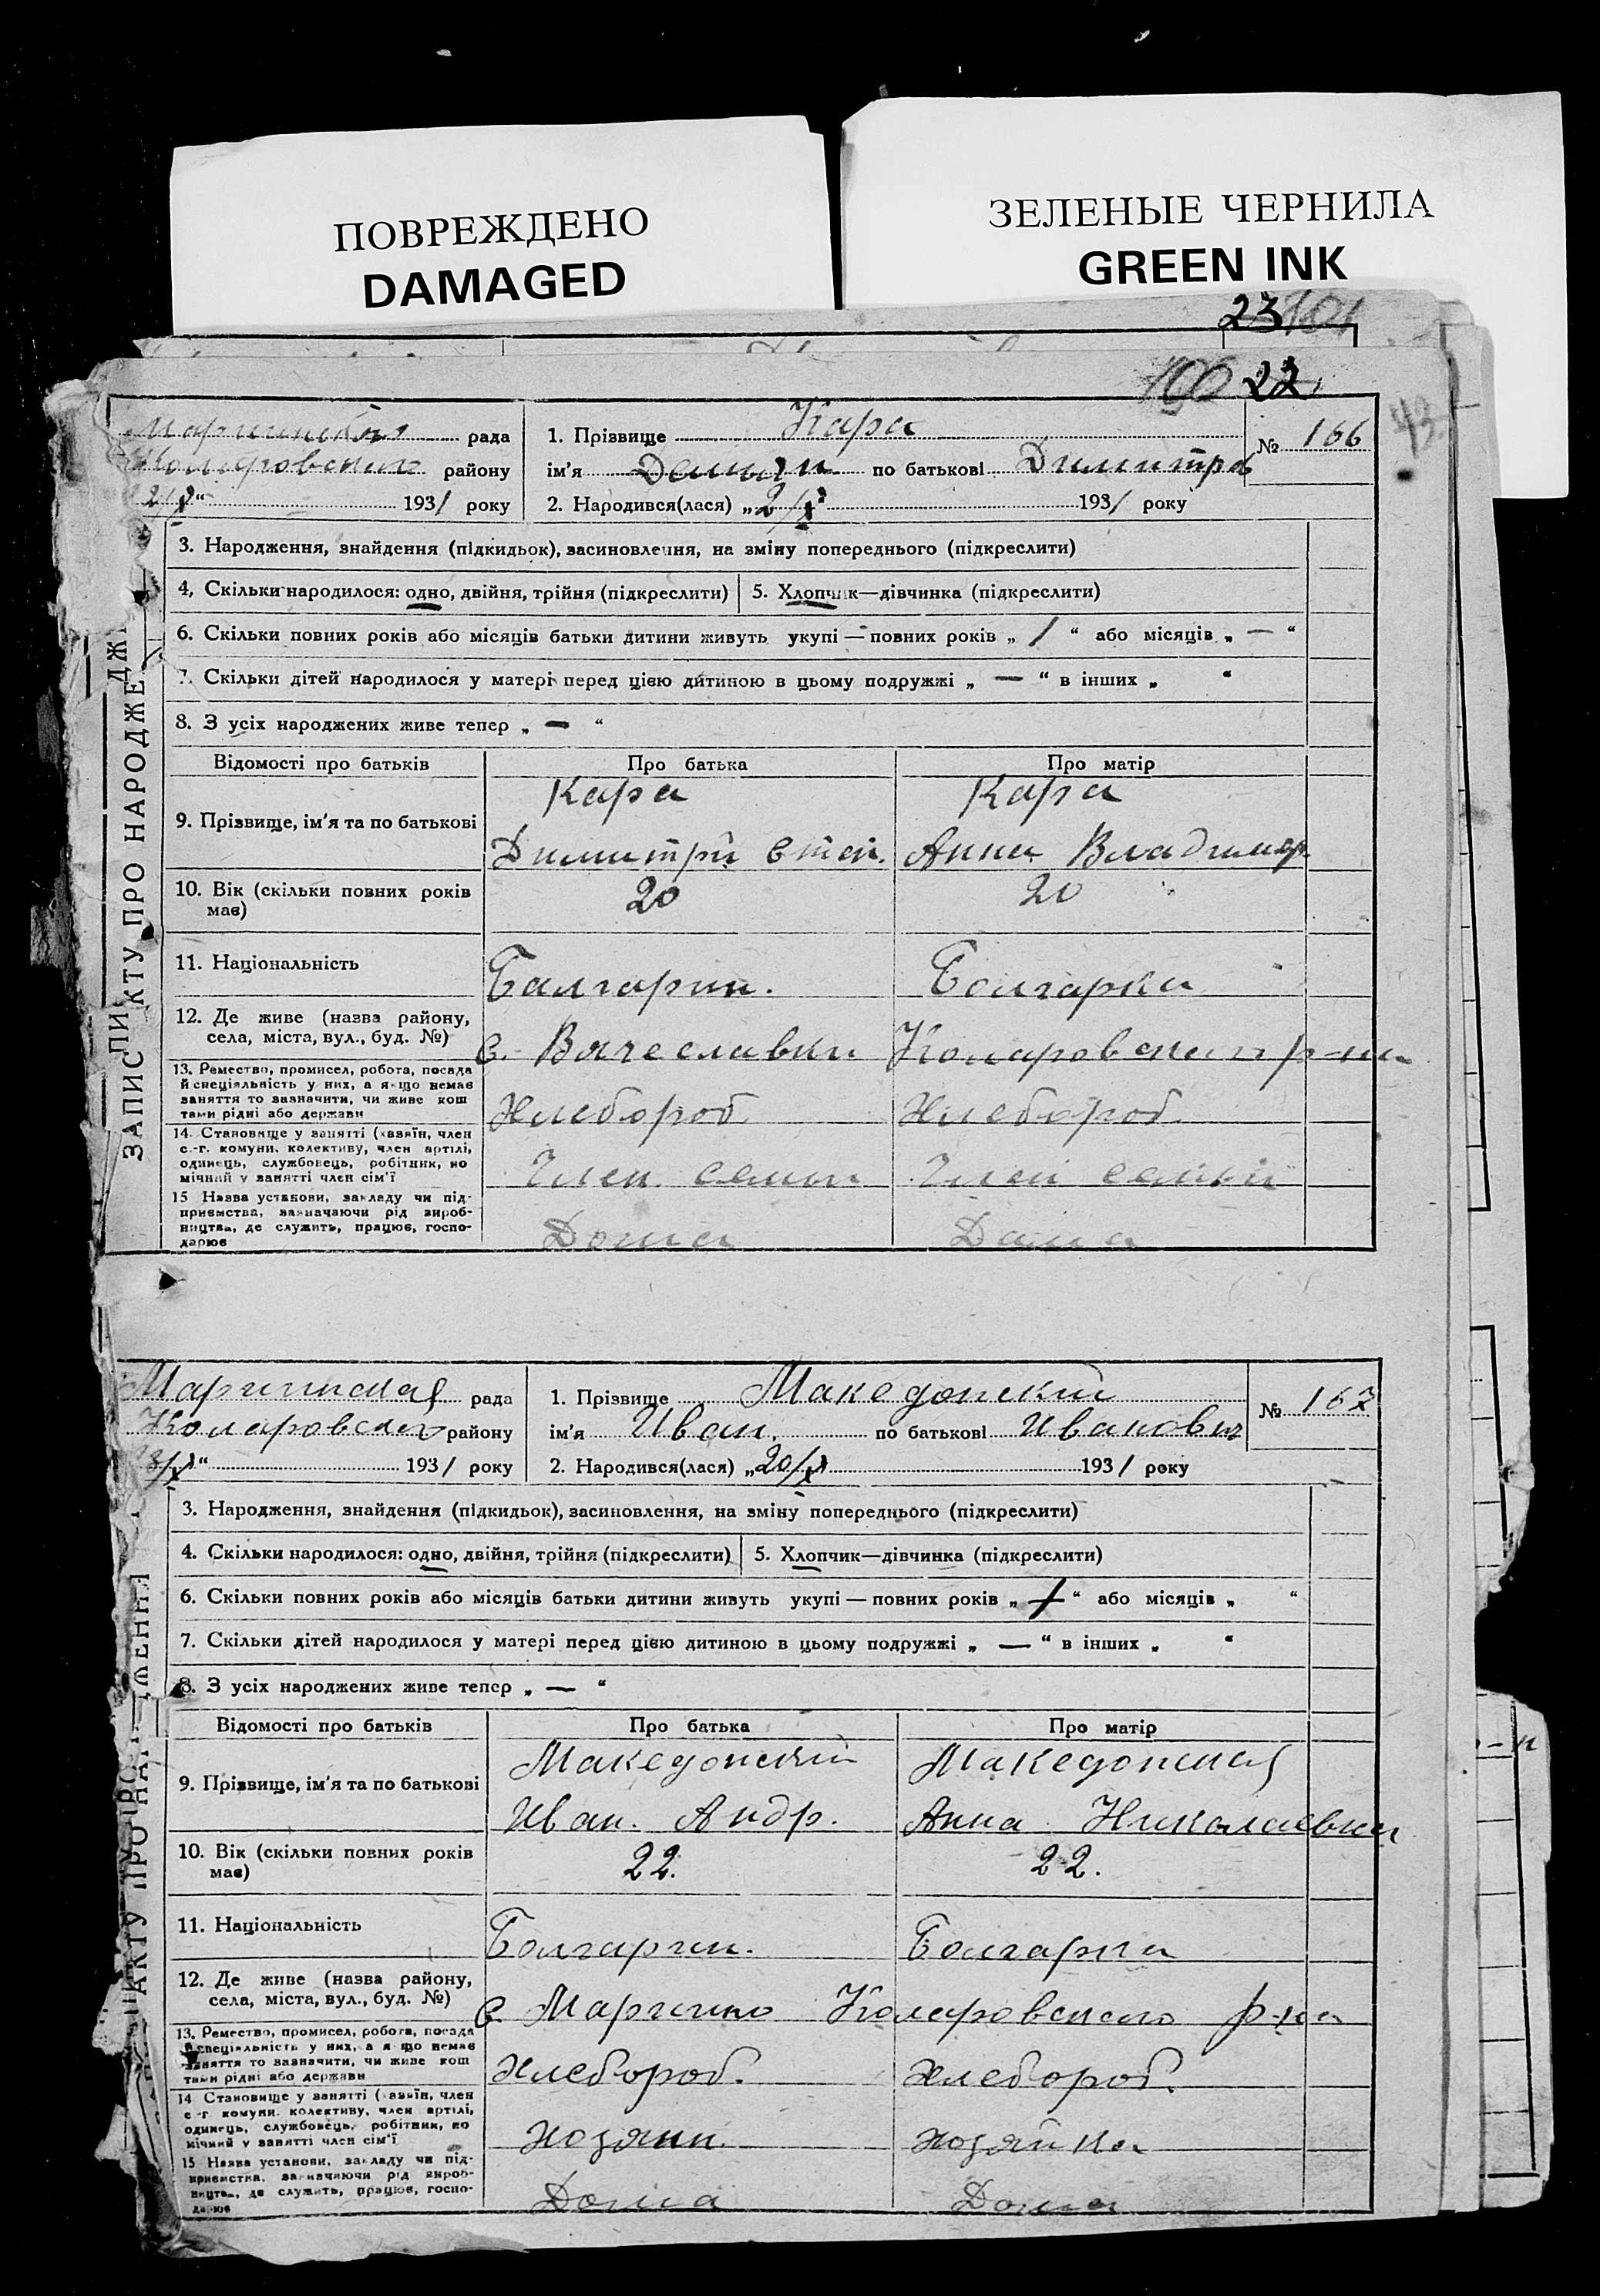 ПОВРЕЖДЕНО
DAMAGED
ЗЕЛЕНЫЕ ЧЕРНИЛА
GREEN INK
23
106 22
43
рада
району
2/X“ 1931 року
1. Прізвище Кара
ім'я Демьян по батькові Димитров
№ 166
2. Народився(лася) „2/X“ 1931 року
3. Народження, знайдення (підкидьок), засиновлення, на зміну попереднього (підкреслити)
4, Скільки народилося: одно, двійня, трійня (підкреслити)
5. Хлопчик—дівчинка (підкреслити)
6. Скільки повних років або місяців батьки дитини живуть укупі — повних років „ 1 “ або місяців „ — “
7. Скільки дітей народилося у матері перед цією дитиною в цьому подружжі „ — “ в інших „ “
8. З усіх народжених живе тепер „ — “
Відомості про батьків
Про батька
Про матір
9. Прізвище, ім'я та по батькові
Кара
Димитрий Степ.
Кара
Анна Владимир.
10. Вік (скільки повних років
має)
20
20
11. Національність
Балгарин.
Болгарка
12. Де живе (назва району,
села, міста, вул., буд. №)
с. Вячеславки Коларовского р-на
13. Ремество, промисел, робота, посада
й спеціяльність у них, а якщо немає
заняття то зазначити, чи живе кош
тами рідні або держави
Хлебороб
Хлебороб.
14. Становище у занятті (хазяїн, член
с.-г. комуни, колективу, член артілі,
одинець, службовець, робітник, по
мічний у занятті член сім'ї
Член. семьи
Член семьи
15 Назва установи, закладу чи під-
приємства, зазначаючи рід вироб-
ництва, де служить, працює, госпо-
дарює
Дома
Дома
ЗАПИС АКТУ ПРО НАРОДЖЕ
Мариинская рада
Коларовского району
1931 року
1. Прізвище Македонский
ім'я Иван. по батькові Иванович
№ 167
2. Народився(лася) „20/X“ 1931 року
3. Народження, знайдення (підкидьок), засиновлення, на зміну попереднього (підкреслити)
4. Скільки народилося: одно, двійня, трійня (підкреслити)
5. Хлопчик—дівчинка (підкреслити)
6. Скільки повних років або місяців батьки дитини живуть укупі — повних років „ 1 “ або місяців „ “
7. Скільки дітей народилося у матері перед цією дитиною в цьому подружжі „ — “ в інших „ “
8. З усіх народжених живе тепер „ — “
Відомості про батьків
Про батька
Про матір
9. Прізвище, ім'я та по батькові
Македонский
Иван. Андр.
Македонская
Анна Николаевна
10. Вік (скільки повних років
має)
22.
22.
11. Національність
Болгарин.
Болгарка
12. Де живе (назва району,
села, міста, вул., буд. №)
с. Марино Коларовского р-на
13. Ремество, промисел, робота, посада
й спеціяльність у них, а якщо немає
заняття то зазначити, чи живе кош
тами рідні або держави
Хлебороб.
Хлебороб.
14 Становище у занятті (хазяїн, член
с.-г. комуни. колективу, член артілі,
одинець, службовець, робітник, по
мічний у занятті член сім'ї
Хозяин.
Хозяйка
15 Назва установи, закладу чи під-
приємства, зазначаючи рід вироб-
ництва, де служить, працює, госпо-
дарює
Дома
Дома
АКТУ ПРО НАР